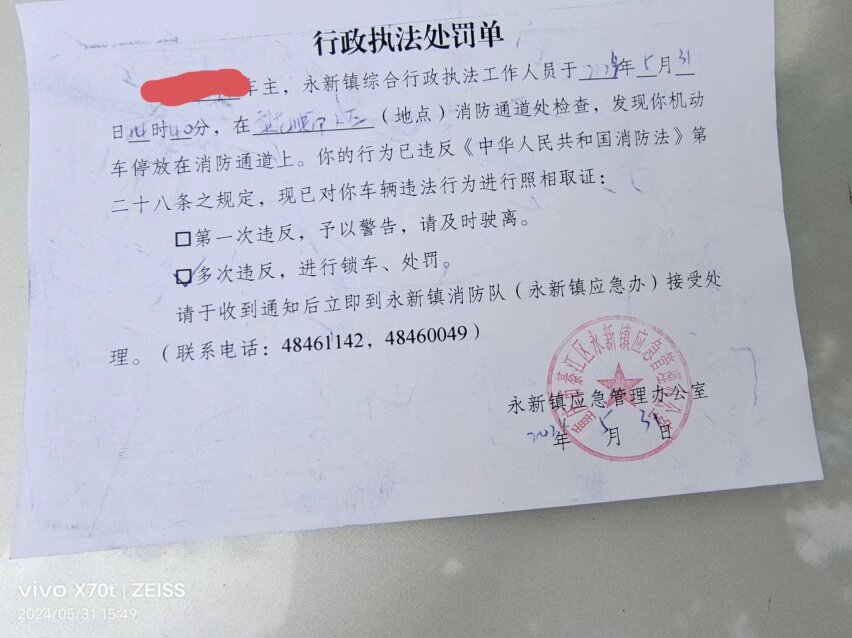 行政执法处罚单
车主，永新镇综合行政执法工作人员于2024年5月31
日14时40分，在（地点）消防通道处检查，发现你机动
车停放在消防通道上。你的行为已违反《中华人民共和国消防法》第
二十八条之规定，现已对你车辆违法行为进行照相取证：
□第一次违反，予以警告，请及时驶离。
☑多次违反，进行锁车、处罚。
请于收到通知后立即到永新镇消防队（永新镇应急办）接受处
理。（联系电话：48461142，48460049）
綦江区永新镇应急管理办公室
永新镇应急管理办公室
2024年5月31日
vivo X70t | ZEISS
2024/05/31 15:49